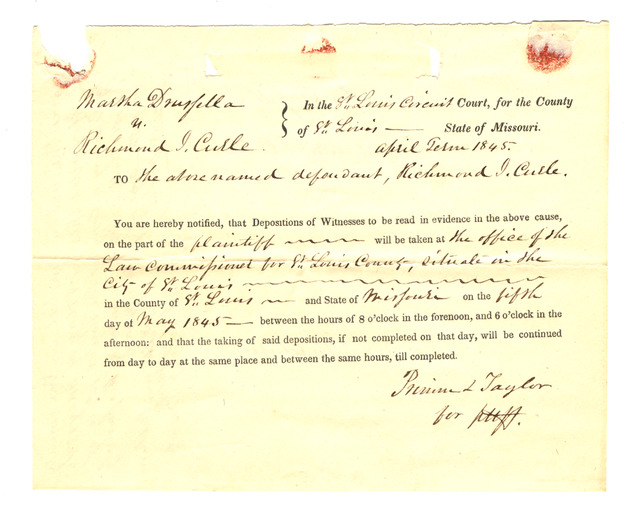 Martha Drusella
v.
Richmond J. Curle.
In the St. Louis Circuit Court, for the County
of St. Louis State of Missouri.
April Term 1845
TO the above named defendant, Richmond J. Curle.
You are hereby notified, that Depositions of Witnesses to be read in evidence in the above cause,
on the part of the plaintiff will be taken at the office of the
Law Commissioner for St. Louis County, situate in the
City of St. Louis
in the County of St. Louis and State of Missouri on the fifth
day of May 1845 between the hours of 8 o'clock in the forenoon, and 6 o'clock in the
afternoon: and that the taking of said depositions, if not completed on that day, will be continued
from day to day at the same place and between the same hours, till completed.
Primm & Taylor
for plff.